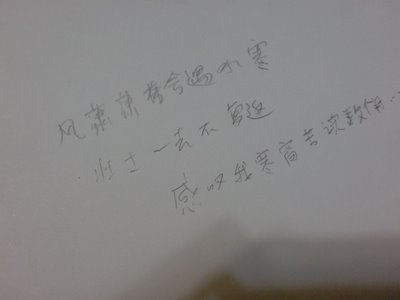 风萧萧兮遇水寒
壮士一去不复返
感叹我寒窗苦读数年...